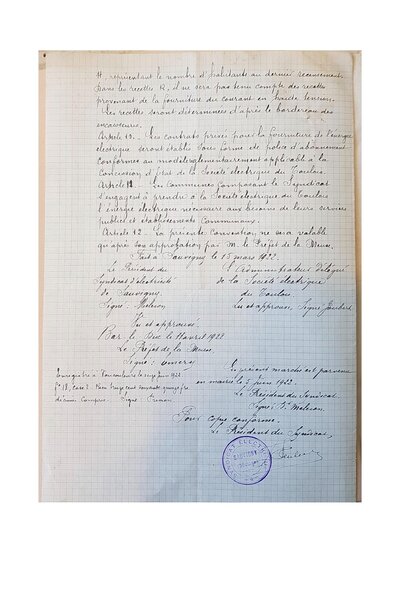 H, représentant le nombre d'habitants au dernier recensement.
Dans les recettes R, il ne sera pas tenu compte des recettes
provenant de la fourniture du courant en haute tension.
Les recettes seront déterminées d'après le bordereau des
encaisseurs.
Article 10. Les contrats privés pour la fourniture de l'énergie
électrique seront établis sous forme de police d'abonnement
conformes au modèle réglementairement applicable à la
Concession d'état de la Société électrique du Toulois.
Article 11. Les Communes Composant le Syndicat
s'engagent à prendre à la Société électrique du Toulois
l'énergie électrique nécessaire aux besoins de leurs services
publics et établissements Communaux.
Article 12. La présente Convention ne sera valable
qu'après son approbation par M. le Préfet de la Meuse.
Fait à Sauvigny le 15 mars 1922.
Le Président du
Syndicat d'électricité
de Sauvigny
Signé
L'Administrateur délégué
de la Société électrique
du Toulois.
Lu et approuvé, Signé
Vu et approuvé
Bar le Duc le avril 1922
Le Préfet de la Meuse,
Signé:
Enregistré à Vaucouleurs le 1922
f° 18, Case 2. Reçu
décimes Compris. Signé
Le présent marché est parvenu
en mairie le 3 juin 1922.
Le Président du Syndicat
Signé:
Pour copie conforme.
Le Président du Syndicat,
SYNDICAT ELECTRIQUE
SAUVIGNY